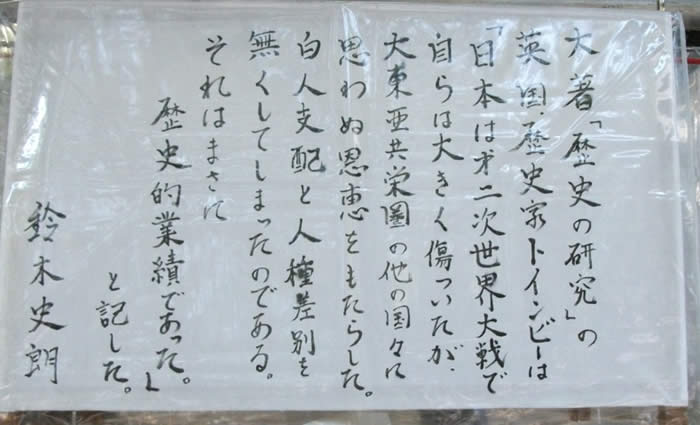 大著「歴史の研究」の
英国、歴史家トインビーは
「日本は才二次世界大戦で
自らは大きく傷ついたが、
大東亜共栄圏の他の国々に
思わぬ恩恵をもたらした。
白人支配と人種差別を
無くしてしまったのである。
それはまさに
歴史的業績であった。」
と記した。
鈴木史朗